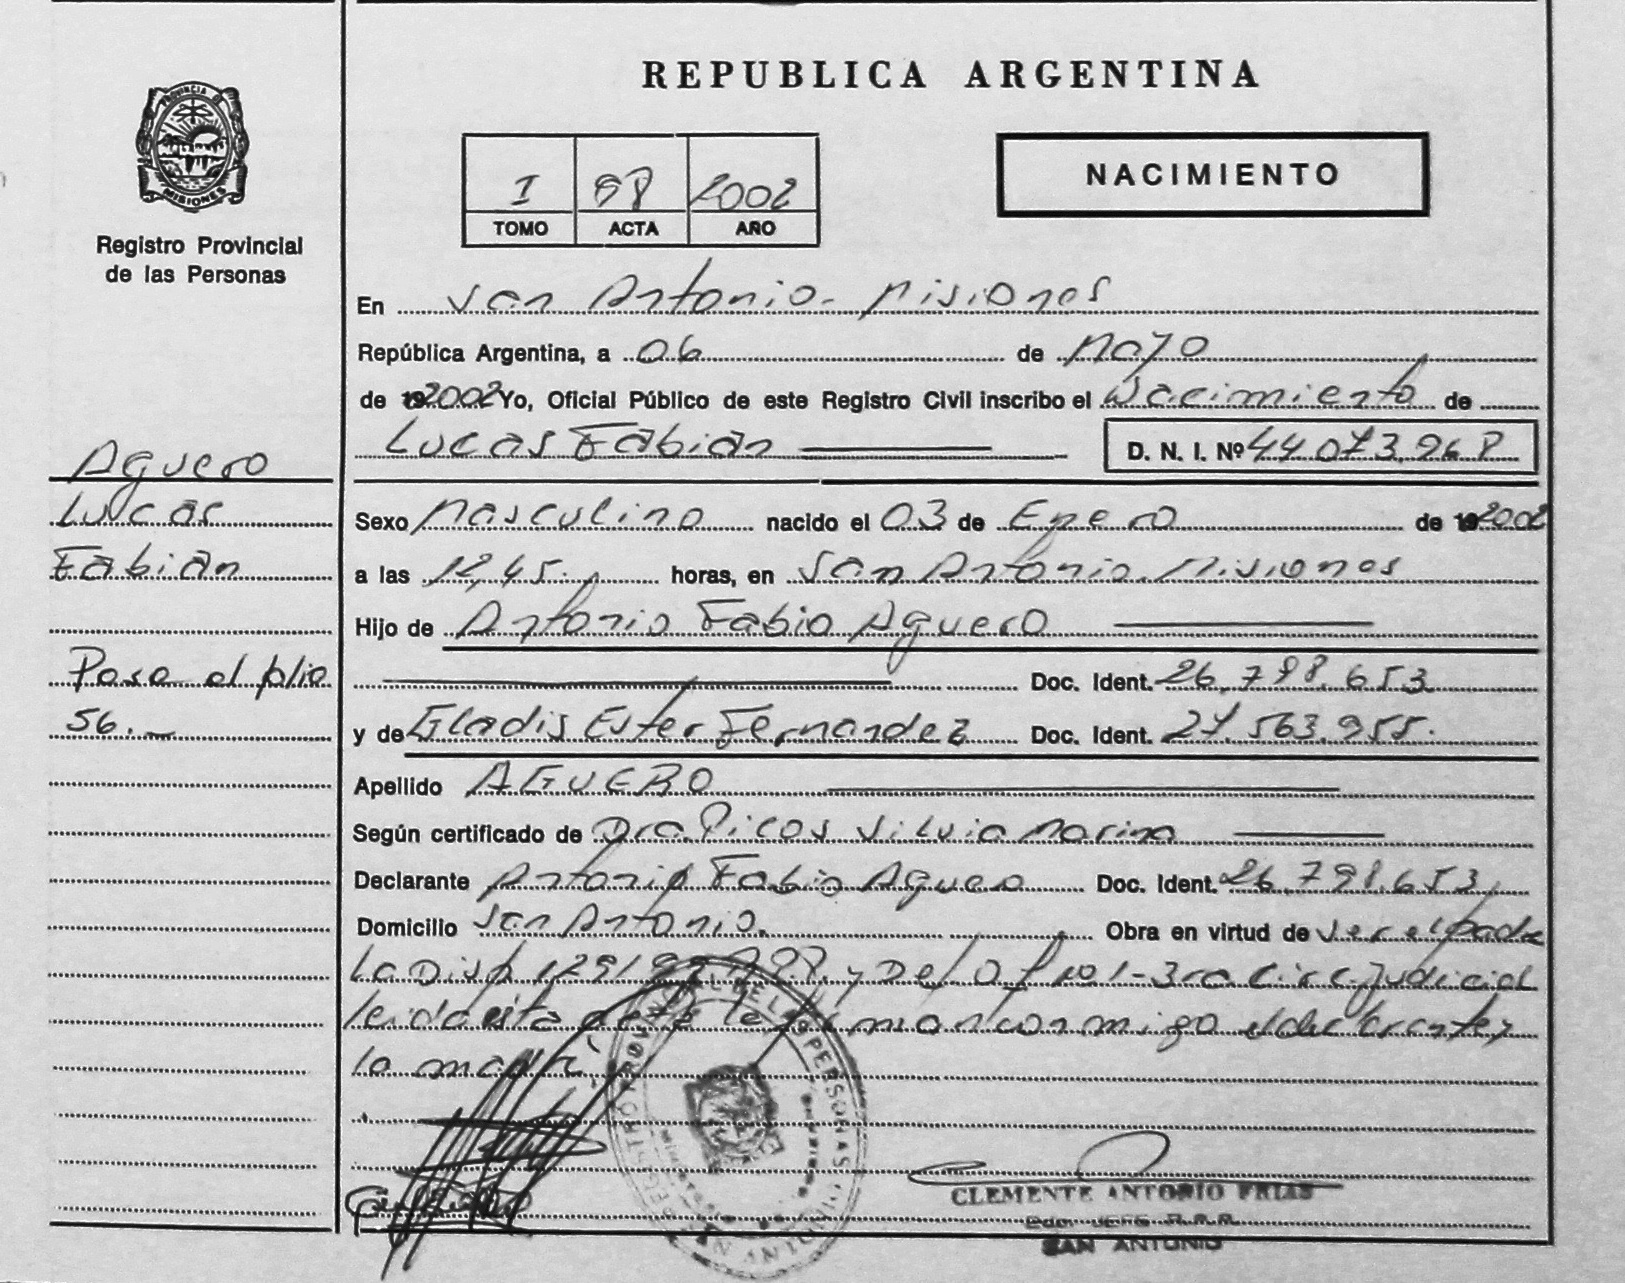 REPUBLICA ARGENTINA
PROVINCIA DE
MISIONES
Registro Provincial
de las Personas
I 98 2002
TOMO ACTA AÑO
NACIMIENTO
En San Antonio - Misiones
República Argentina, a 06 de Mayo
de 2002 Yo, Oficial Público de este Registro Civil inscribo el Nacimiento de
Lucas Fabian D. N. I. Nº 44.073.968
Aguero
Lucas
Fabian
Sexo Masculino nacido el 03 de Enero de 2002
a las 12,45. horas, en San Antonio. Misiones
Hijo de Antonio Fabio Aguero
Doc. Ident. 26.798.653
Pasa al folio
56.-
y de Gladis Ester Fernandez Doc. Ident. 27.563.955.
Apellido AGUERO
Según certificado de Dra Picos Silvia Marina
Declarante Antonio Fabio Aguero Doc. Ident. 26.798.653,
Domicilio San Antonio. Obra en virtud de ser el padre
La Disp 129/99 y De No 1-3ra Circ. Judicial
leida esta acta la firman conmigo el declarante y
la madre
CLEMENTE ANTONIO FRIAS
JEFE R.P.P.
SAN ANTONIO